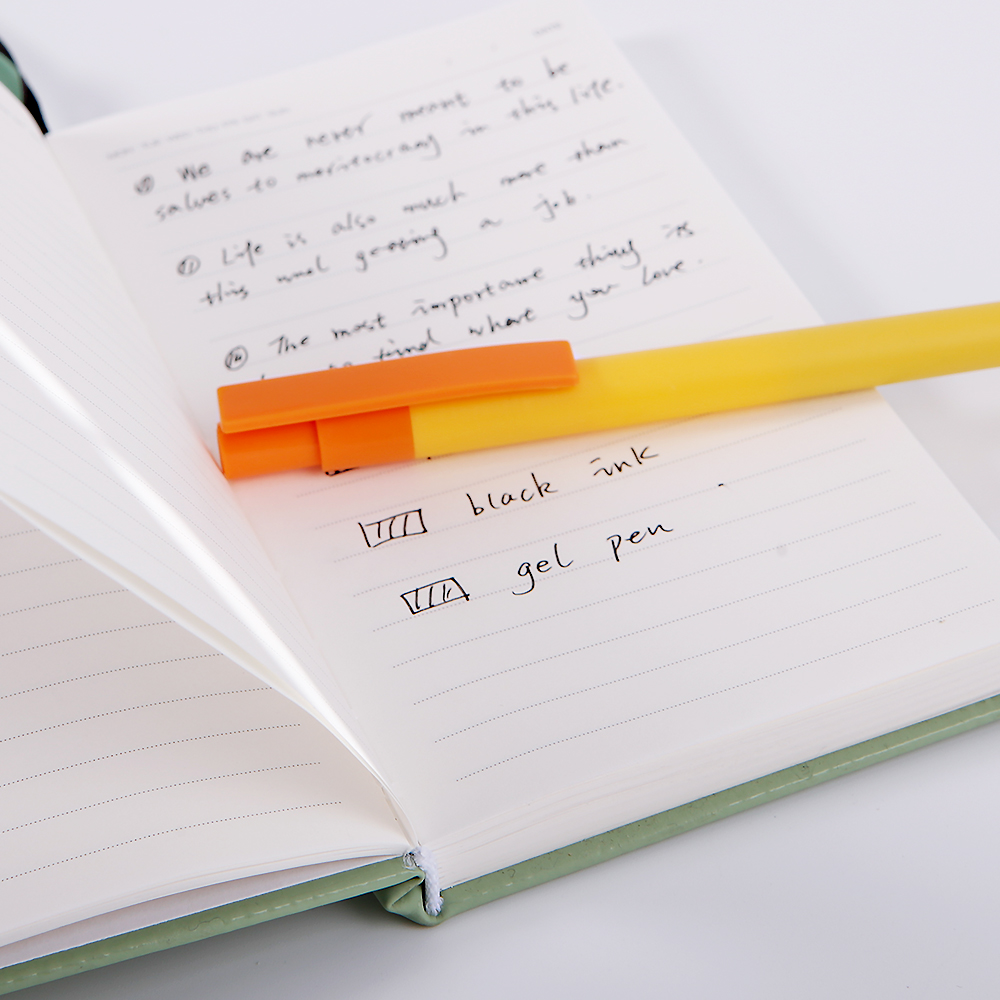 We are never meant to be
salves to meritocracy in this life.
Life is also much more than
this and geeting a job.
The most important thing is
find what you love.
black ink
gel pen